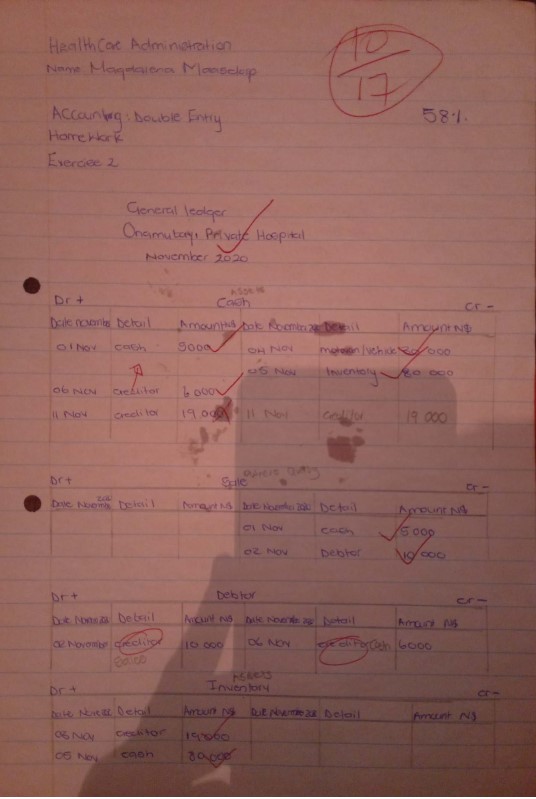 HealthCare Administration
Name Magdalena
10
17
58%
Accounting: Double Entry
HomeWork
Exercise 2
General ledger
Private Hospital
November 2020
Assets
Dr + Cash cr -
Date November Detail Amount N$ Date November Detail Amount N$
01 Nov cash 5000 04 Nov vehicle 000
05 Nov Inventory 80 000
06 Nov creditor 6 000
11 Nov creditor 19 000 11 Nov creditor 19 000
Dr + Sale cr -
Date November Detail Amount N$ Date November Detail Amount N$
01 Nov cash 5 000
02 Nov Debtor 10 000
Dr + Debtor cr -
Detail Amount N$ Detail Amount N$
02 November creditor 10 000 06 Nov creditor Cash 6000
Assets
Dr + Inventory cr -
Detail Amount N$ Detail Amount N$
05 Nov creditor 19 000
05 Nov cash 80 000